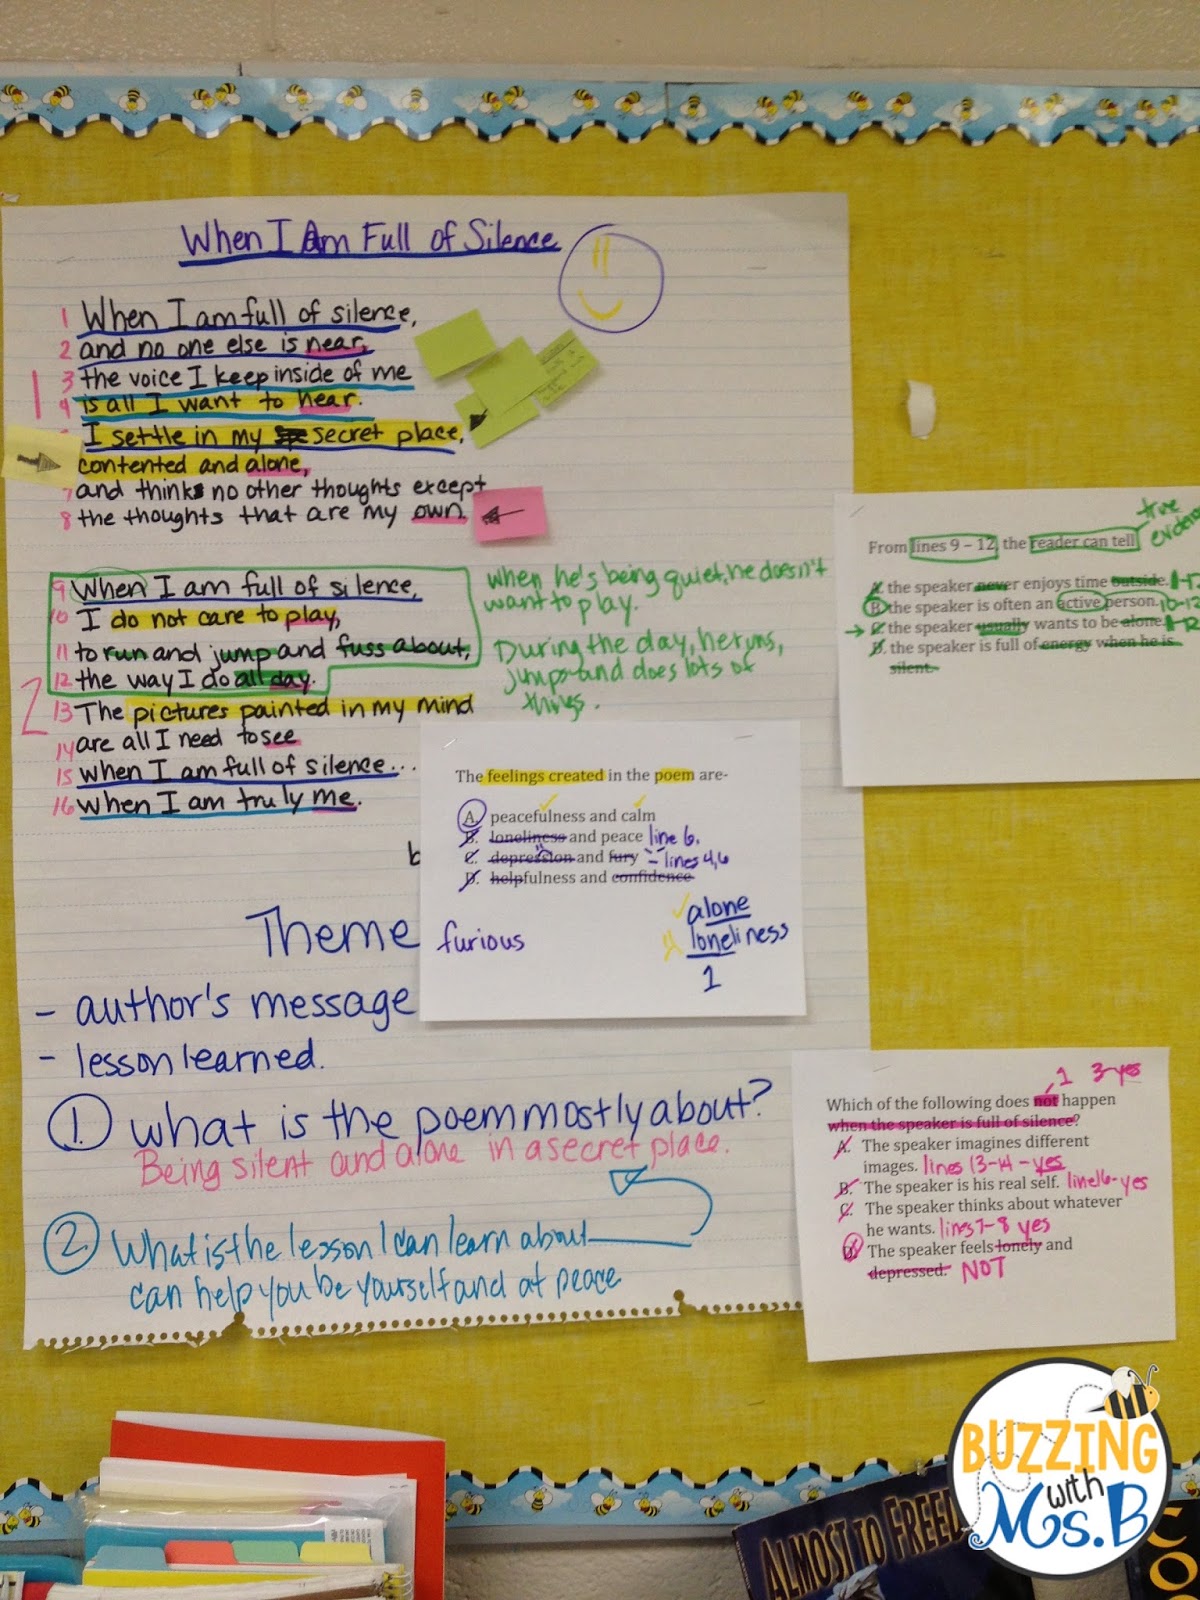 When I Am Full of Silence
1 When I am full of silence,
2 and no one else is near,
3 the voice I keep inside of me
4 is all I want to hear.
I settle in my secret place,
contented and alone,
7 and think no other thoughts except
8 the thoughts that are my own.
9 When I am full of silence,
10 I do not care to play,
11 to run and jump and fuss about,
12 the way I do all day.
13 The pictures painted in my mind
14 are all I need to see
15 when I am full of silence...
16 when I am truly me.
1
2
When he's being quiet, he doesn't
want to play.
During the day, he runs,
jumps and does lots of
things.
Theme
- author's message
- lesson learned.
1. What is the poem mostly about?
Being silent and alone in a secret place.
2. What is the lesson I can learn about
can help you be yourself and at peace
The feelings created in the poem are-
A. peacefulness and calm
B. loneliness and peace line 6.
C. depression and fury - lines 4,6
D. helpfulness and confidence
furious
alone
loneliness
1
true
From lines 9 – 12, the reader can tell
A. the speaker never enjoys time outside.
B. the speaker is often an active person. 10-12
C. the speaker usually wants to be alone.
D. the speaker is full of energy when he is
silent.
1 3-yes
Which of the following does not happen
when the speaker is full of silence?
A. The speaker imagines different
images. lines 13-14 - yes
B. The speaker is his real self. line 16-yes
C. The speaker thinks about whatever
he wants. lines 7-8 yes
D. The speaker feels lonely and
depressed. NOT
BUZZING
with
Ms.B
ALMOST TO FREE